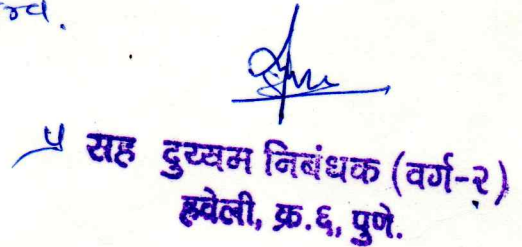 सह दुय्यम निबंधक (वर्ग-२)
हवेली, क्र.६, पुणे.